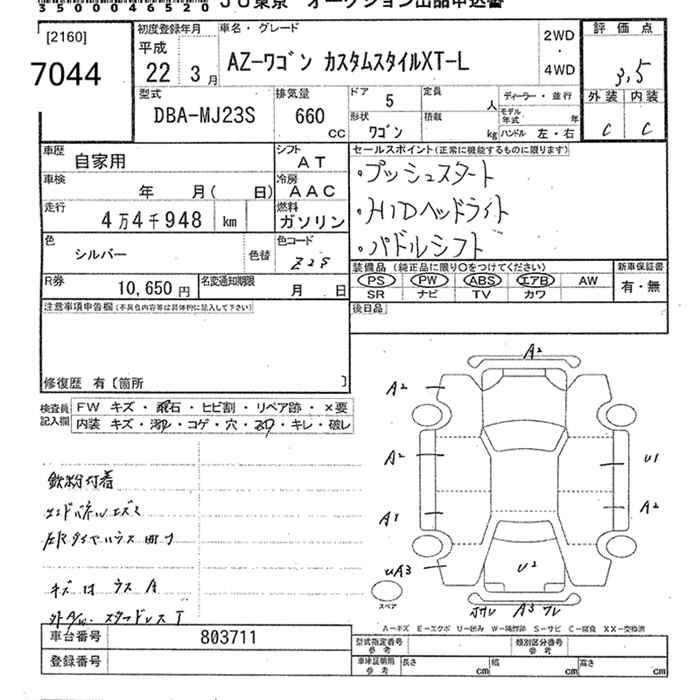 350004 6520 JU東京 オークション出品申込書
[2160]
7044
初度登録年月
平成
22 3 月
車名・グレード
AZ-ワゴン カスタムスタイルXT-L
2WD
・
4WD
評価点
3,5
外装 内装
C C
型式
DBA-MJ23S
排気量
660
CC
ドア
5
定員
人
ディーラー・並行
形状
ワゴン
積載
kg
モデル年式
年
ハンドル 左・右
車歴
自家用
シフト
AT
車検
年 月( 日)
冷房
AAC
走行
4万4千948 km
燃料
ガソリン
色
シルバー
色替
色コード
Z2S
R券
10,650 円
名変通知期限
月 日
セールスポイント(正常に機能するものに限ります)
・プッシュスタート
・HIDヘッドライト
・パドルシフト
装備品 (純正品に限り○をつけてください)
PS PW ABS エアB AW
SR ナビ TV カワ
新車保証書
有・無
後日品
注意事項申告欄(不具合内容等は具体的に記入して下さい)
修復歴 有〔箇所 〕
検査員
記入欄
FW キズ・飛石・ヒビ割・リペア跡・×要
内装 キズ・汚れ・コゲ・穴・スレ・キレ・破レ
鉄粉付着
エンドパネルエズミ
左Rタイヤハウス凹み
キズ は ウス A
外A/W. スタッドレス T
A2
A2
A2
U1
A1
A2
UA3
U2
スペア
A3
A-キズ E-エクボ U-凹み W-補修跡 S-サビ C-腐食 XX-交換済
車台番号
803711
登録番号
型式指定番号
参考
類別区分番号
参考
車庫証明用
参考
長さ cm 幅 cm 高さ cm